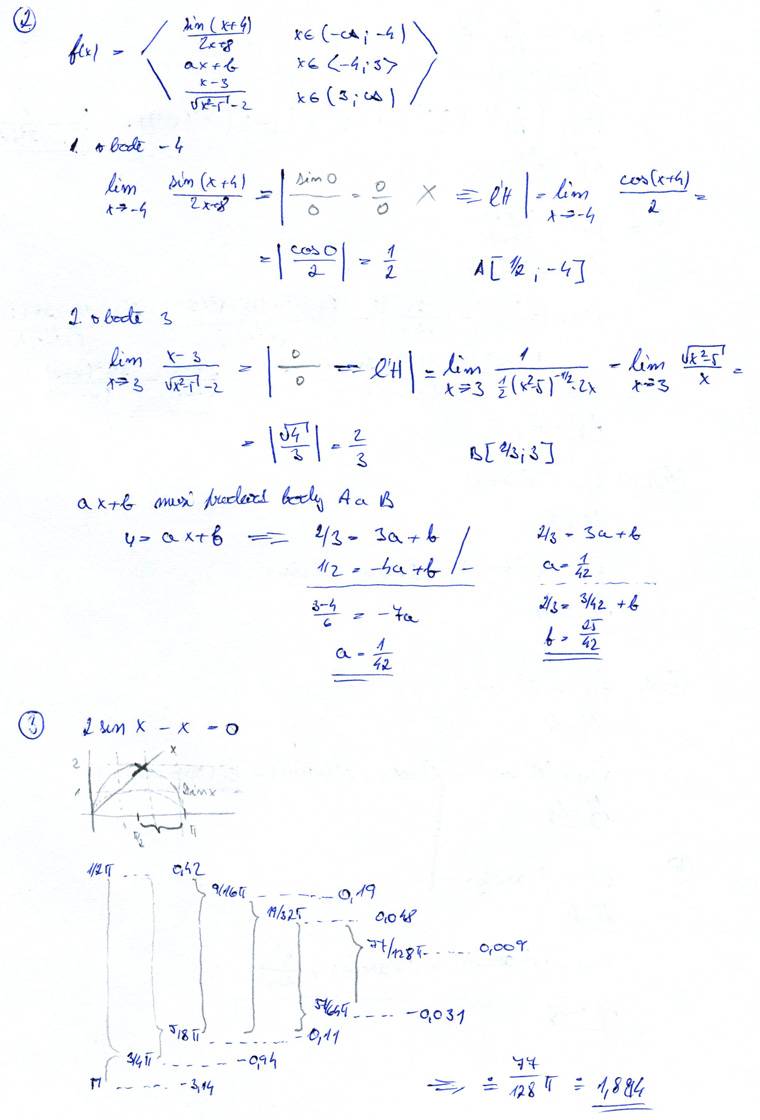 ②
f(x) = sin(x+4)/2x+8 x∈(-∞; -4)
ax+b x∈<-4;3>
x-3/√x²-5 -2 x∈(3; ∞)
1. v bodě -4
lim x→-4 sin(x+4)/2x+8 = | sin 0/0 = 0/0 X ⇒ l'H | = lim x→-4 cos(x+4)/2 =
= | cos 0/2 | = 1/2 A[1/2; -4]
2. v bodě 3
lim x→3 x-3/√x²-5 -2 = | 0/0 ⇒ l'H | = lim x→3 1/½(x²-5)^-1/2·2x = lim x→3 √x²-5/x =
= | √4/3 | = 2/3 B[2/3; 3]
ax+b musí body A a B
y = ax+b ⇒ 2/3 = 3a + b 2/3 = 3a + b
1/2 = -4a + b /- a = 1/42
3-4/6 = -7a 2/3 = 3/42 + b
a = 1/42 b = 25/42
③ 2 sin x - x = 0
x
2
2sinx
π/2 π
1/2π --- 0,42
9/16π --- 0,19
19/32π --- 0,048
77/128π --- 0,009
37/64π --- -0,031
5/8π --- -0,11
3/4π --- -0,94
π --- -3,14
⇒ ≐ 77/128 π ≐ 1,894